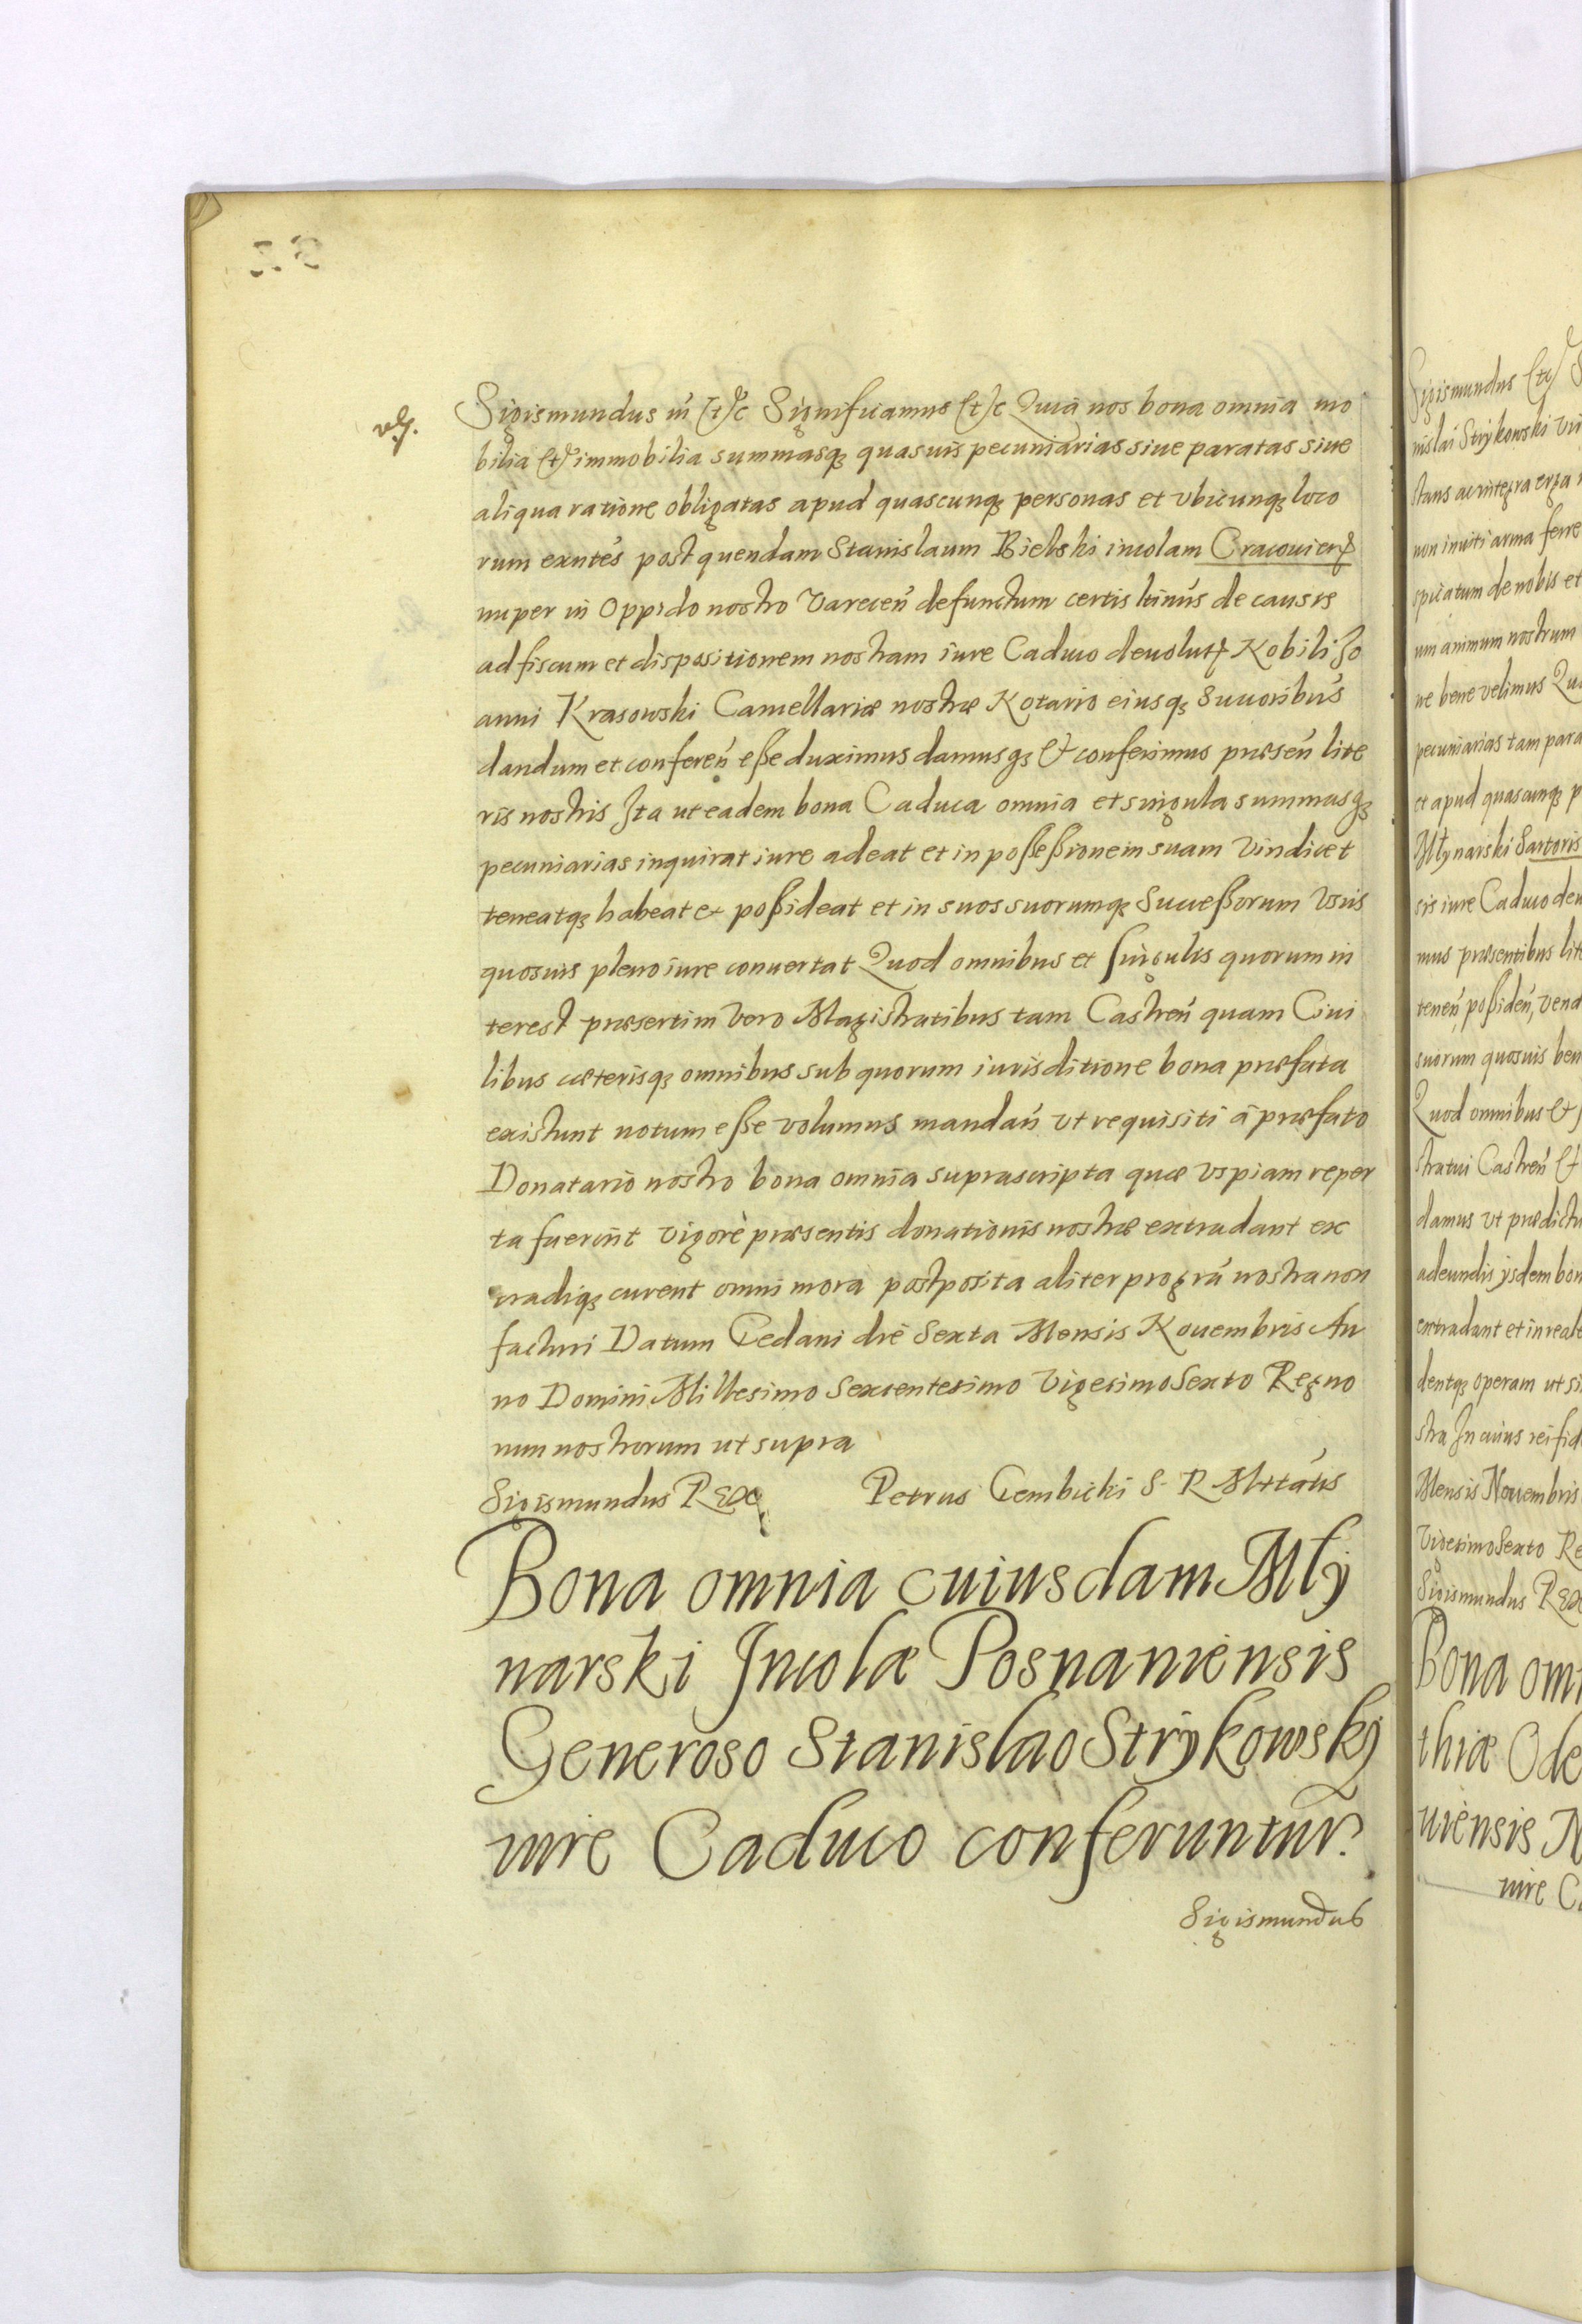 Sigismundus iii etc Significamus etc Quia nos bona omnia mo
bilia et immobilia summasq₃ quasuis pecuniarias siue paratas siue
aliqua ratione obligatas apud quascunq₃ personas et vbicunq₃ loco
rum exntes post quendam Stanislaum Bielski incolam Cracouien
nuper in Oppido nostro Varecen defunctum certis ltimis de causis
ad fiscum et dispositionem nostram iure Caduco deuolut Nobili Jo
anni Krasowski Cancellariæ nostræ Notario eiusq₃ Succoribus
dandum et conferen eße duximus damusq₃ & conferimus præsen lite
ris nostris Ita ut eadem bona Caduca omnia et singula summasq₃
pecuniarias inquirat iure adeat et in poßeßionem suam Vindicet
teneatq₃ habeat et poßideat et in suos suorumq₃ Succeßorum Vsus
quosuis pleno iure conuertat Quod omnibus et singulis quorum in
terest præsertim Vero Magistratibus tam Castren quam Ciui
libus cæterisq₃ omnibus sub quorum iurisditione bona præfata
existunt notum eße volumus mandan vt requisiti à præfato
Donatario nostro bona omnia suprascripta quæ vspiam reper
ta fuerint vigore præsentis donationis nostræ extradant ex
tradiq₃ curent omni mora postposita aliter pro gra nostra non
facturi Datum Gedani die Sexta Mensis Nouembris An
no Domini Millesimo Sexcentesimo Vigesimo Sexto Regno
rum nostrorum ut supra
Sigismundus Rex Petrus Gembicki S. R. Mttatis
Bona omnia cuiusdam Mly
narski Incolæ Posnaniensis
Generoso Stanislao Strykowsky
iure Caduco conferuntur.
Sigismundus
Sigismundus etc
nislai Strykowski
stans ac integra erga
non inuiti arma ferre
spicatum de nobis et
um animum nostrum
ne bene velimus
pecuniarias tam para
et apud quascunq₃ p
Młynarski Sartoris
sis iure Caduco deu
mus præsentibus lite
tenen, poßiden, vend
suorum quosuis ben
Quod omnibus &
stratui Castren &
damus vt prædictu
adeundis ysdem bon
extradant et in reale
dentq₃ operam ut si
stra In cuius rei fid
Mensis Nouembris
Vigesimo Sexto Re
Sigismundus Rex
Bona omn
thiæ Ode
uiensis N
iure C